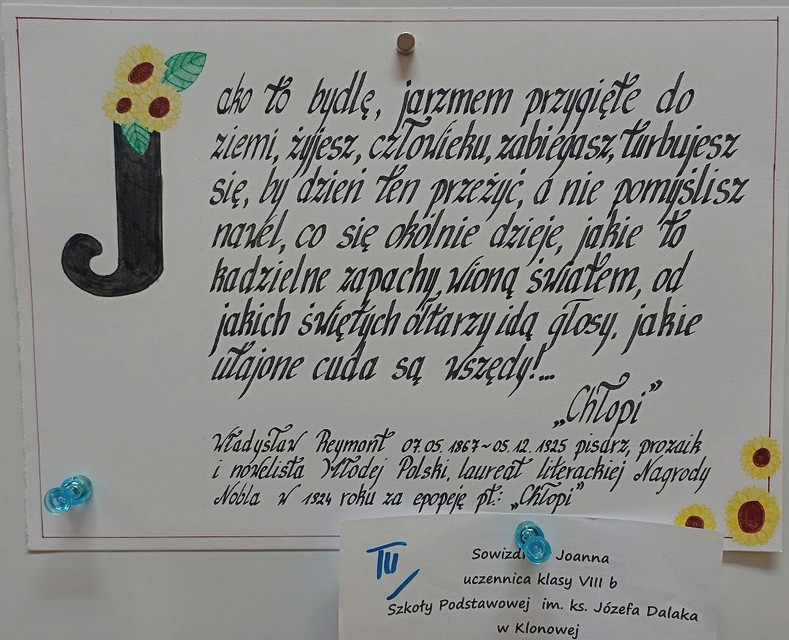 Jako to bydlę, jarzmem przygięte do
ziemi, żyjesz, człowieku, zabiegasz, turbujesz
się, by dzień ten przeżyć, a nie pomyślisz
nawet, co się okólnie dzieje, jakie to
kadzielne zapachy wioną światem, od
jakich świętych ołtarzy idą głosy, jakie
utajone cuda są wszędy!...
„Chłopi”
Władysław Reymont 07.05.1867~05.12.1925 pisarz, prozaik
i nowelista Młodej Polski, laureat literackiej Nagrody
Nobla w 1924 roku za epopeję pt.: „Chłopi”
Joanna
uczennica klasy VIII b
Szkoły Podstawowej im. ks. Józefa Dalaka
w Klonowej